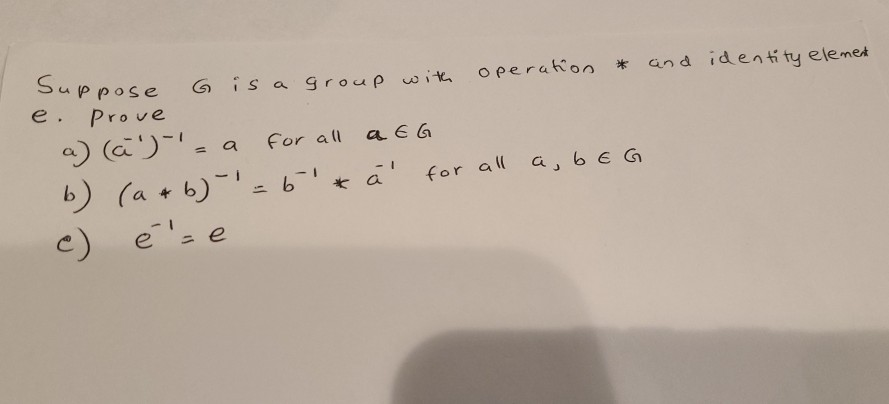 Suppose G is a group with operation * and identity element
e. Prove
a) (a⁻¹)⁻¹ = a for all a ∈ G
b) (a * b)⁻¹ = b⁻¹ * a⁻¹ for all a, b ∈ G
c) e⁻¹ = e